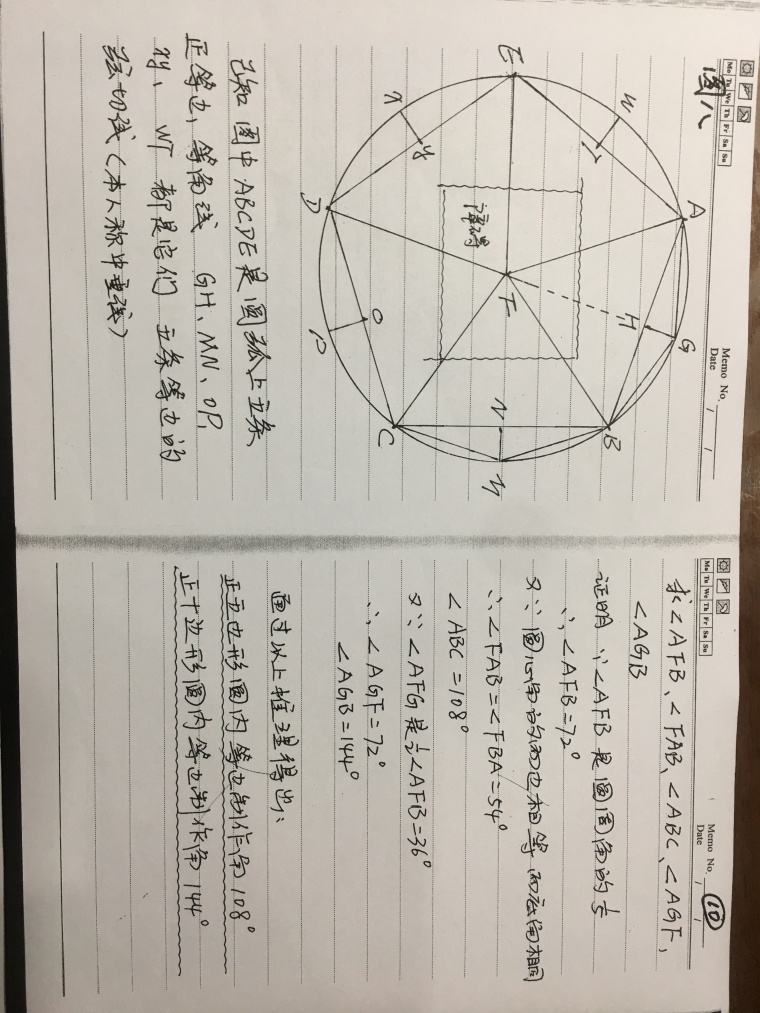 Mo Tu We Th Fr Sa Su
Memo No.
Date / /
图八
E
A
G
B
M
C
P
D
X
y
O
N
H
F
障碍
已知 圆中 ABCDE 是圆弧上五条
正等边,等角线 GH、MN、OP、
XY、WT 都是它们 五条等边的
弦切线(本人称中垂线)
Mo Tu We Th Fr Sa Su
Memo No.
Date / /
10
求∠AFB、∠FAB、∠ABC、∠AGF、
∠AGB
证明 ∵∠AFB 是圆周角的1/5
∴∠AFB=72°
又∵圆心角的两边相等 两底角相同
∴∠FAB=∠FBA=54°
∠ABC=108°
又∵∠AFG是½∠AFB=36°
∴∠AGF=72°
∠AGB=144°
通过以上推理得出:
正五边形圆内等边制作角108°
正十边形圆内等边制作角144°